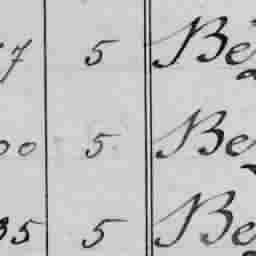 7 5 Be
00 5 Be
35 5 Be